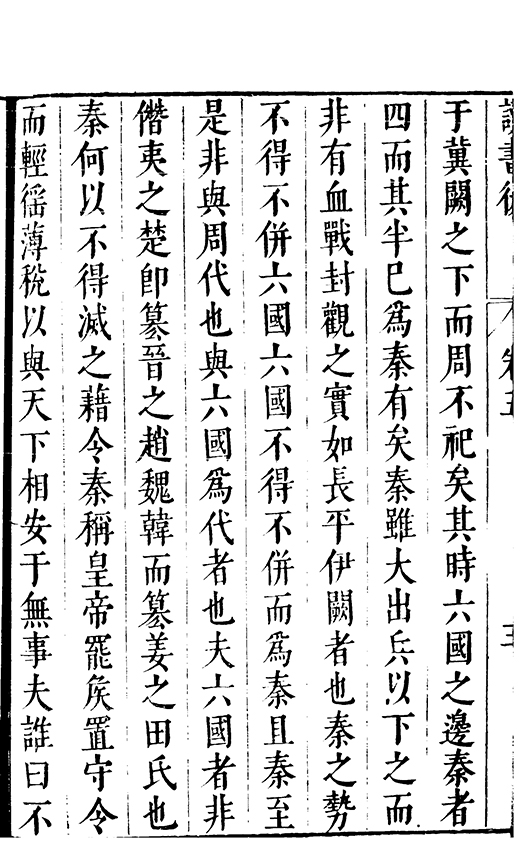 讀書後 卷五 五
于冀闕之下而周不祀矣其時六國之邊秦者
四而其半已為秦有矣秦雖大出兵以下之而
非有血戰封觀之實如長平伊闕者也秦之勢
不得不併六國六國不得不併而為秦且秦至
是非與周代也與六國為代者也夫六國者非
僭夷之楚卽篡晉之趙魏韓而篡姜之田氏也
秦何以不得滅之藉令秦稱皇帝罷矦置守令
而輕徭薄稅以與天下相安于無事夫誰曰不